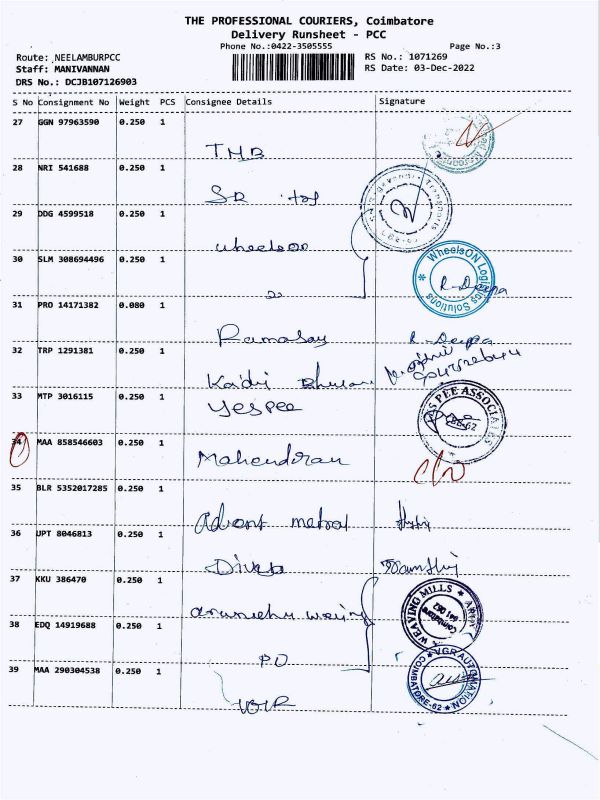 THE PROFESSIONAL COURIERS, Coimbatore
Delivery Runsheet - PCC
Phone No.:0422-3505555 Page No.:3
Route: NEELAMBURPCC RS No.: 1071269
Staff: MANIVANNAN RS Date: 03-Dec-2022
DRS No.: DCJB107126903
S No Consignment No Weight PCS Consignee Details Signature
27 GGN 97963590 0.250 1
TMB
28 NRI 541688 0.250 1
SR
29 DDG 4599518 0.250 1
wheelson
30 SLM 308694496 0.250 1
WheelsON Logistics Solutions
R. Deepa
31 PRO 14171382 0.080 1
Ramasay R. Deepa
32 TRP 1291381 0.250 1
33 MTP 3016115 0.250 1
Yespee
YES PEE ASSOCIATES
34 MAA 858546603 0.250 1
Mahendiran
35 BLR 5352017285 0.250 1
Advant metal
36 UPT 8046813 0.250 1
Divya
37 KKU 386470 0.250 1
WEAVING MILLS
Coimbatore
641 062
38 EDQ 14919688 0.250 1
PO
VGR AUTOMATION
COIMBATORE-62
39 MAA 290304538 0.250 1
VGR